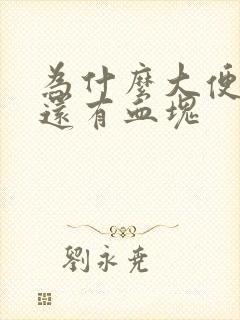 為什麼大便
還有血塊
劉永堯